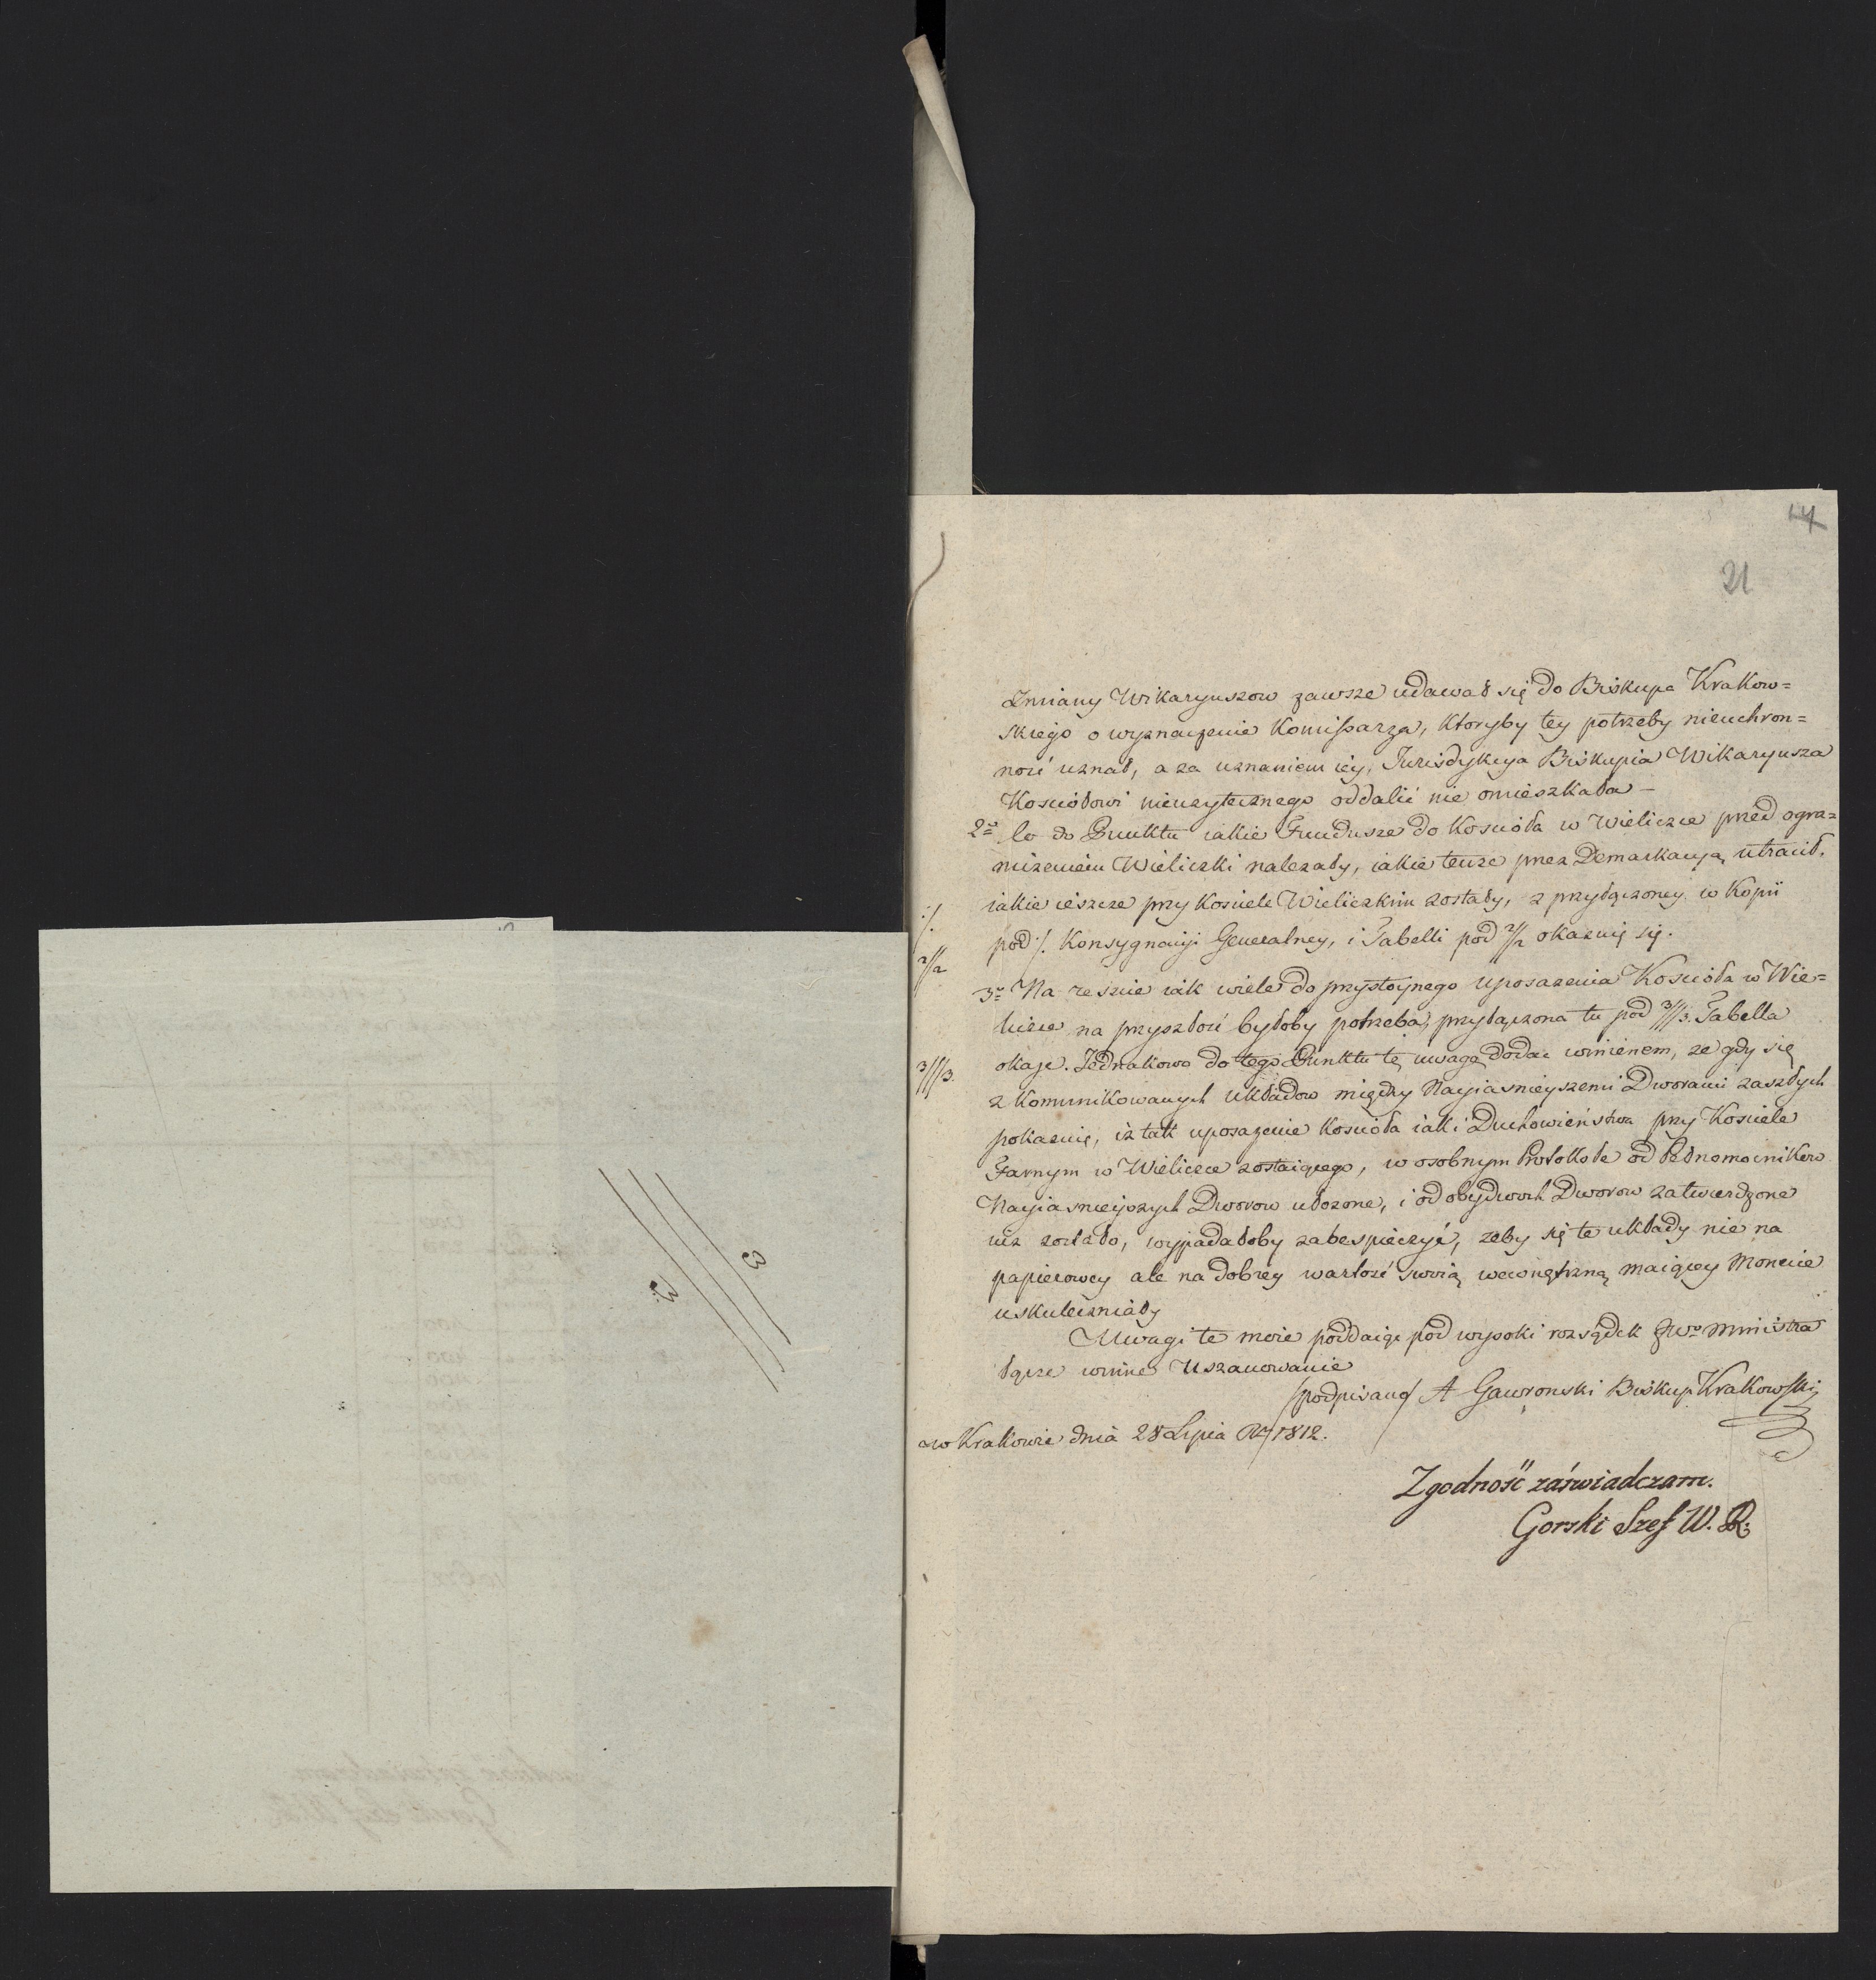 3
3.
14
21
Zmiany Wikaryuszow zawsze udawał się do Biskupa Krakow=
skiego o wyznaczenie Komissarza, ktoryby tey potrzeby nieuchron=
ność uznał, a za uznaniem iey, Jurisdykcya Biskupia Wikaryusza
Kosciołowi nieuzytecznego oddalić nie omieszkała –
2do Co do Punktu iakie Fundusze do Koscioła w Wieliczce przed ogra=
niczeniem Wieliczki nalezały, iakie tenze przez Demarkacyą utracił,
iakie ieszcze przy Kosciele Wieliczkim zostały, z przyłączoney w Kopii
./.
pod ./. Konsygnacyi Generalney, i Tabelli pod 2//2 okazuię się.
2//2
3o Na reszcie iak wiele do przystoynego uposazenia Koscioła w Wie=
liczce na przyszłość byłoby potrzeba, przyłączona tu pod 3///3. Tabella
3///3.
okaże. Jednakowo do tego Punktu tę uwagę dodac winienem, ze gdy się
z komunikowanych układow między Nayiasnieyszemi Dworami zaszłych
pokazuię, iz tak uposazenie Koscioła iak i Duchowieństwa przy Kosciele
Farnym w Wieliczce zostaiącego, w osobnym Protokole od Pełnomocnikow
Nayiasnieyszych Dworow ułozone, i od obydwoch Dworow zatwierdzone
iuz zostało, wypadałoby zabespieczyć, zeby się te układy nie na
papierowey ale na dobrey wartość swoią wewnętrzną maiącey Monecie
uskuteczniały
Uwagi te moie poddaiąc pod wysoki rozsądek JWo Ministra
łącze winne Uszanowanie
/podpisano/ A Gawronski Biskup Krakowski
w Krakowie dnia 28 Lipca R/ 1812.
Zgodność zaświadczam.
Gorski Szef W. R.